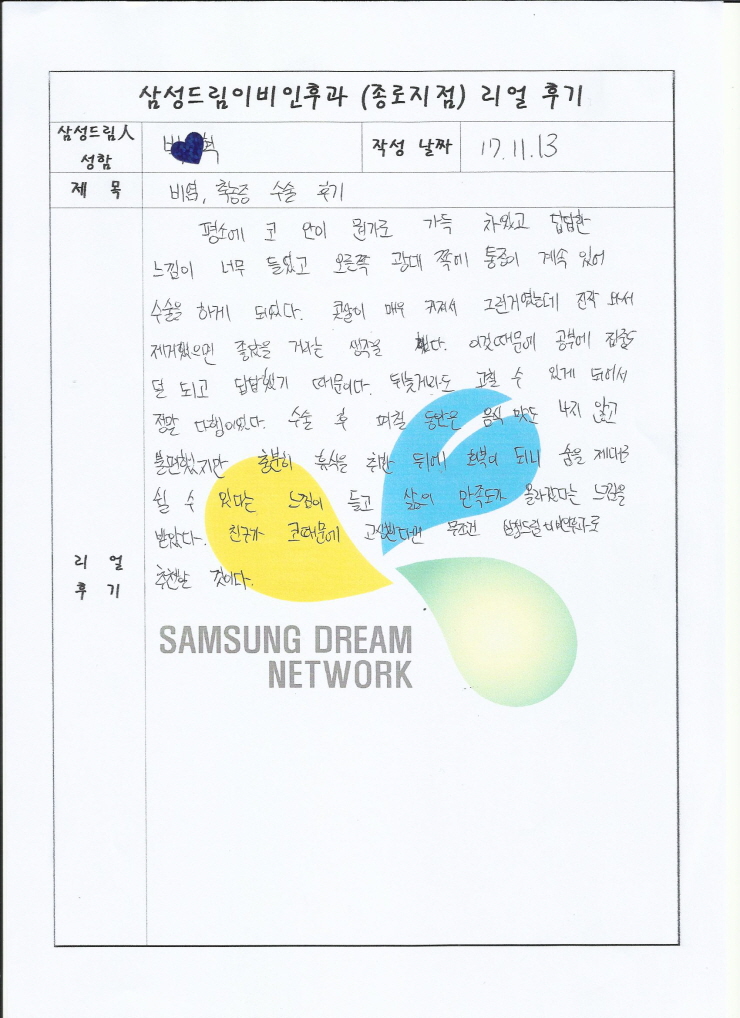 삼성드림이비인후과 (종로지점) 리얼 후기
삼성드림人 성함 혁 작성 날짜 17.11.13
제 목 비염, 축농증 수술 후기
평소에 코 안이 뭔가로 가득 차있고 답답한
느낌이 너무 들었고 오른쪽 광대 쪽에 통증이 계속 있어
수술을 하게 되었다. 콧살이 매우 커져서 그런거였는데 진작 와서
제거했으면 좋았을 거라는 생각을 했다. 이것때문에 공부에 집중도
덜 되고 답답했기 때문이다. 뒤늦게라도 고칠 수 있게 되어서
정말 다행이었다. 수술 후 며칠 동안은 음식 맛도 나지 않고
불편했지만 충분히 휴식을 취한 뒤에 회복이 되니 숨을 제대로
쉴 수 있다는 느낌이 들고 삶의 만족도가 올라갔다는 느낌을
받았다. 친구가 코때문에 고생한다면 무조건 삼성드림이비인후과로
추천할 것이다.
리 얼
후 기
SAMSUNG DREAM
NETWORK